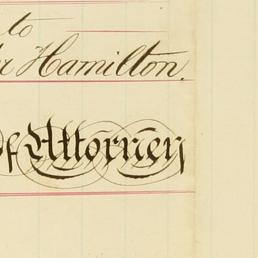 to
r Hamilton.
of Attorney